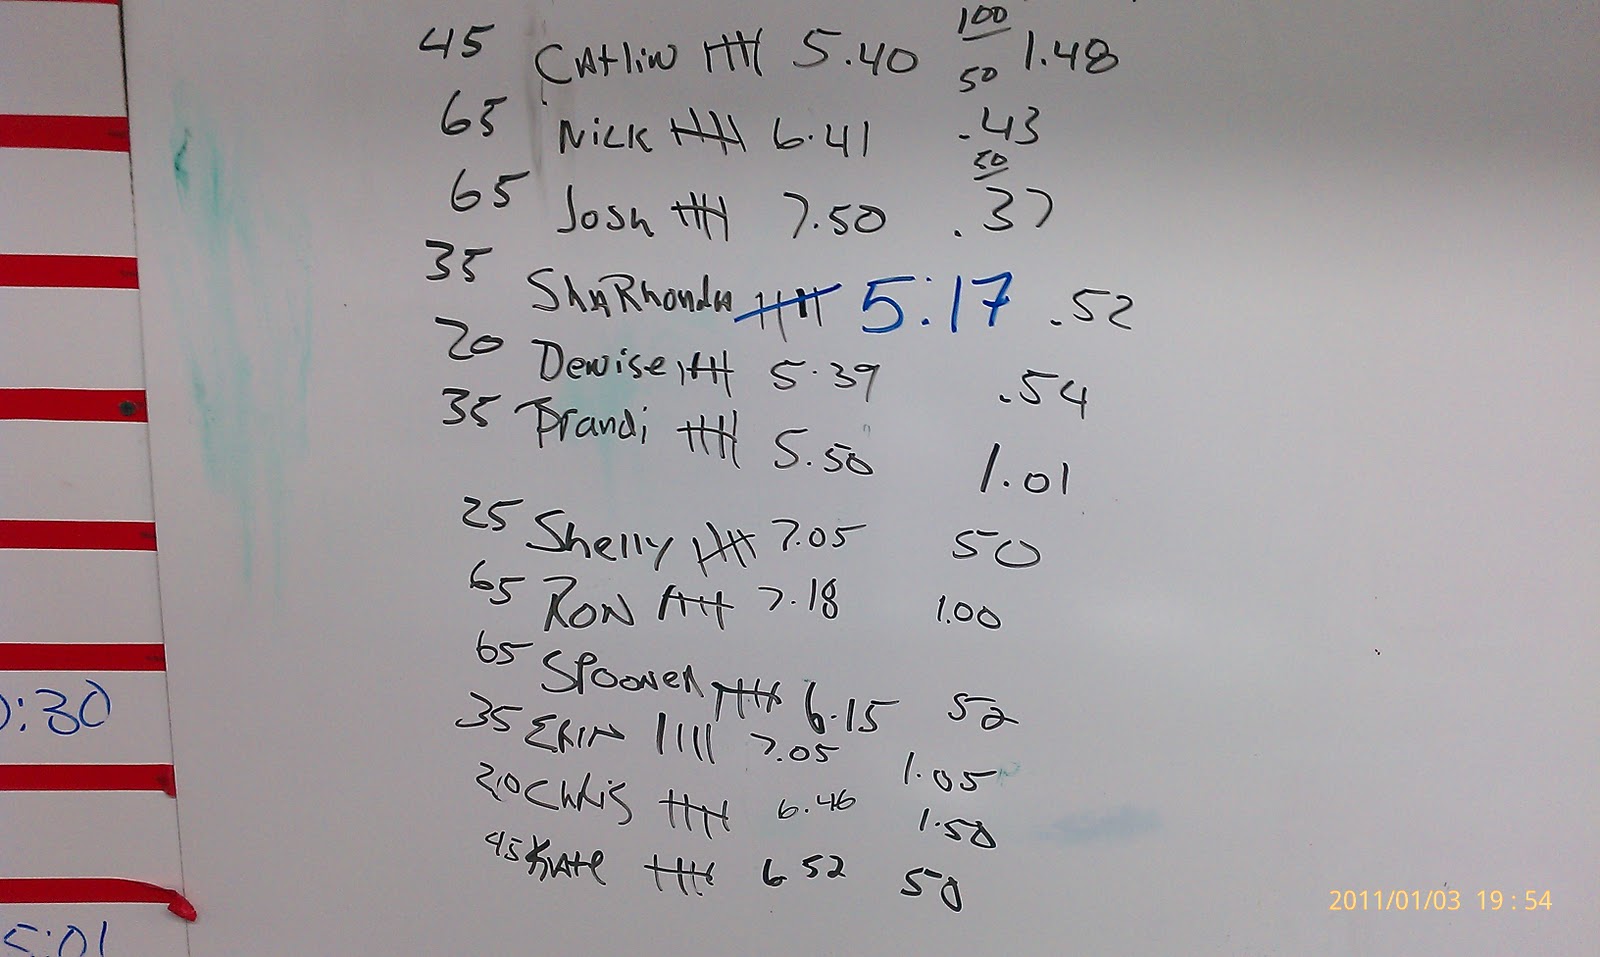 45 CAtliN 5.40 100 50 1.48
65 Nick 6.41 .43
65 Josh 7.50 50 .37
35 ShARhondA 5:17 .52
20 Denise 5.39 .54
35 Brandi 5.50 1.01
25 Shelly 7.05 50
65 RON 7.18 1.00
65 SPOONER 6.15 52
35 ERIN 7.05 1.05
20 Chris 6.46 1.50
45 KAte 6 52 50
:30
5:01
2011/01/03 19:54